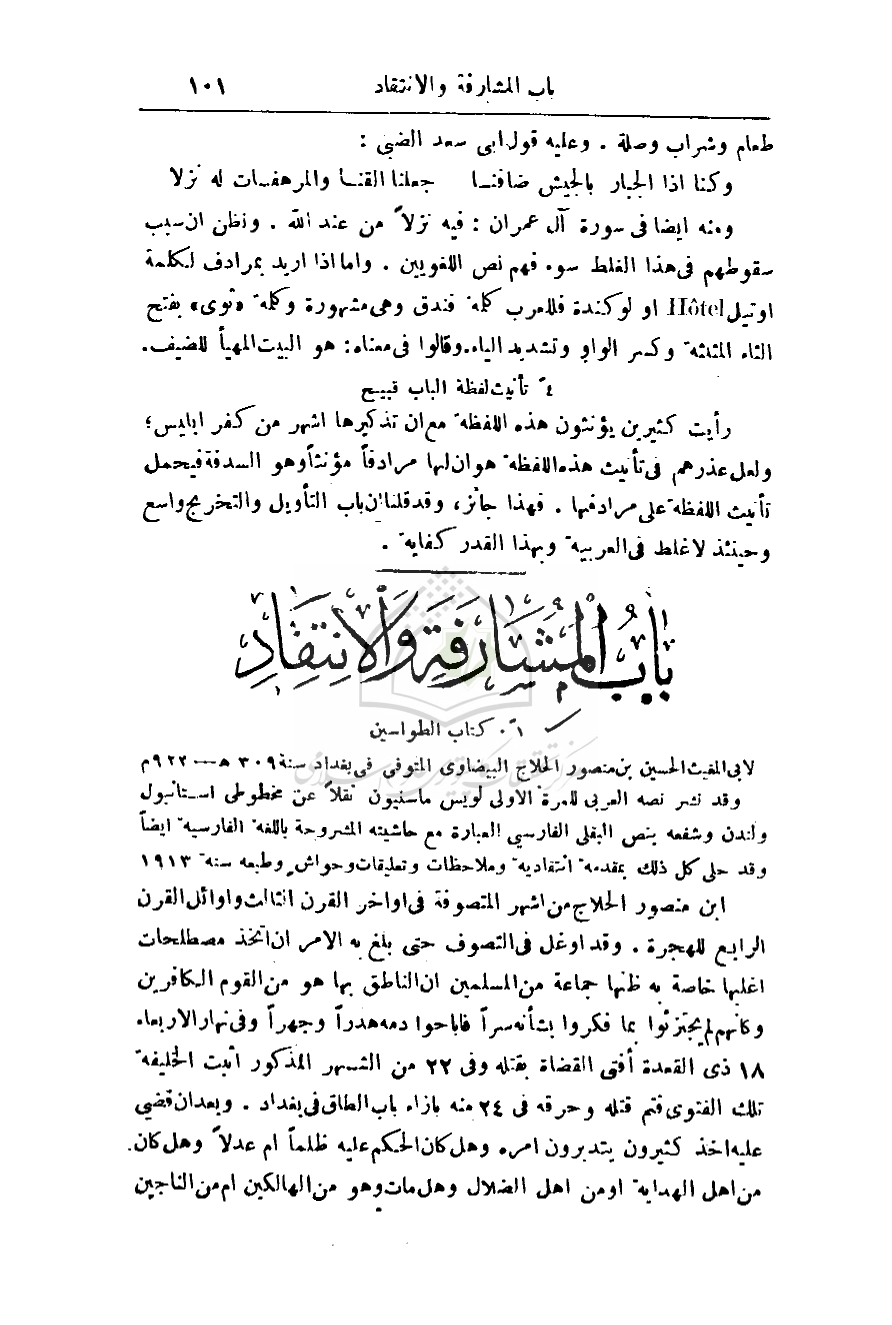 باب المشارفة والانتقاد ١٠١
طعام وشراب وصلة . وعليه قول ابى سعد الضبى :
وكنا اذا الجبار بالجيش ضافنا جعلنا القنا والمرهفات له نزلا
ومنه ايضا فى سورة آل عمران : فيه نزلاً من عند الله . ونظن ان سبب
سقوطهم فى هذا الغلط سوء فهم نص اللغويين . واما اذا اريد بمرادف لكلمة
اوتيل Hôtel او لوكندة فللعرب كلمة فندق وهى مشهورة وكلمة «ثوى» بفتح
الثاء المثلثة وكسر الواو وتشديد الياء. وقالوا فى معناه: هو البيت المهيأ للضيف.
٤ً تأنيث لفظة الباب قبيح
رأيت كثيرين يؤنثون هذه اللفظة مع ان تذكيرها اشهر من كفر ابليس؛
ولعل عذرهم فى تأنيث هذه اللفظة هو ان لها مرادفاً مؤنثاً وهو السدفة فيحمل
تأنيث اللفظة على مرادفها . فهذا جائز، وقد قلنا ان باب التأويل والتخريج واسع
وحينئذ لا غلط فى العربية وبهذا القدر كفاية .
بَابُ الْمُشَارَفَةِ وَالْانْتِقَادِ
١ً. كتاب الطواسين
لابى المغيث الحسين بن منصور الحلاج البيضاوى المتوفي فى بغداد سنة ٣٠٩ ه — ٩٢٢م
وقد نشر نصه العربي للمرة الاولى لويس ماسنيون نقلاً عن مخطوطي استانبول
ولندن وشفعه بنص البقلى الفارسي العبارة مع حاشيته المشروحة باللغة الفارسية ايضاً
وقد حلى كل ذلك بمقدمة انتقادية وملاحظات وتعليقات وحواشٍ وطبعه سنة ١٩١٣
ابن منصور الحلاج من اشهر المتصوفة فى اواخر القرن الثالث واوائل القرن
الرابع للهجرة . وقد اوغل فى التصوف حتى بلغ به الامر ان اتخذ مصطلحات
اغلبها خاصة به ظنها جماعة من المسلمين ان الناطق بها هو من القوم الكافرين
وكأنهم لم يجتزئوا بما فكروا بشأنه سراً فاباحوا دمه هدراً وجهراً وفى نهار الاربعاء
١٨ ذى القعدة أفتى القضاة بقتله وفى ٢٢ من الشهر المذكور اثبت الخليفة
تلك الفتوى فتم قتله وحرقه فى ٢٤ منه بازاء باب الطاق فى بغداد . وبعد ان قضي
عليه اخذ كثيرون يتدبرون امره وهل كان الحكم عليه ظلماً ام عدلاً وهل كان
من اهل الهداية او من اهل الضلال وهل مات وهو من الهالكين ام من الناجين